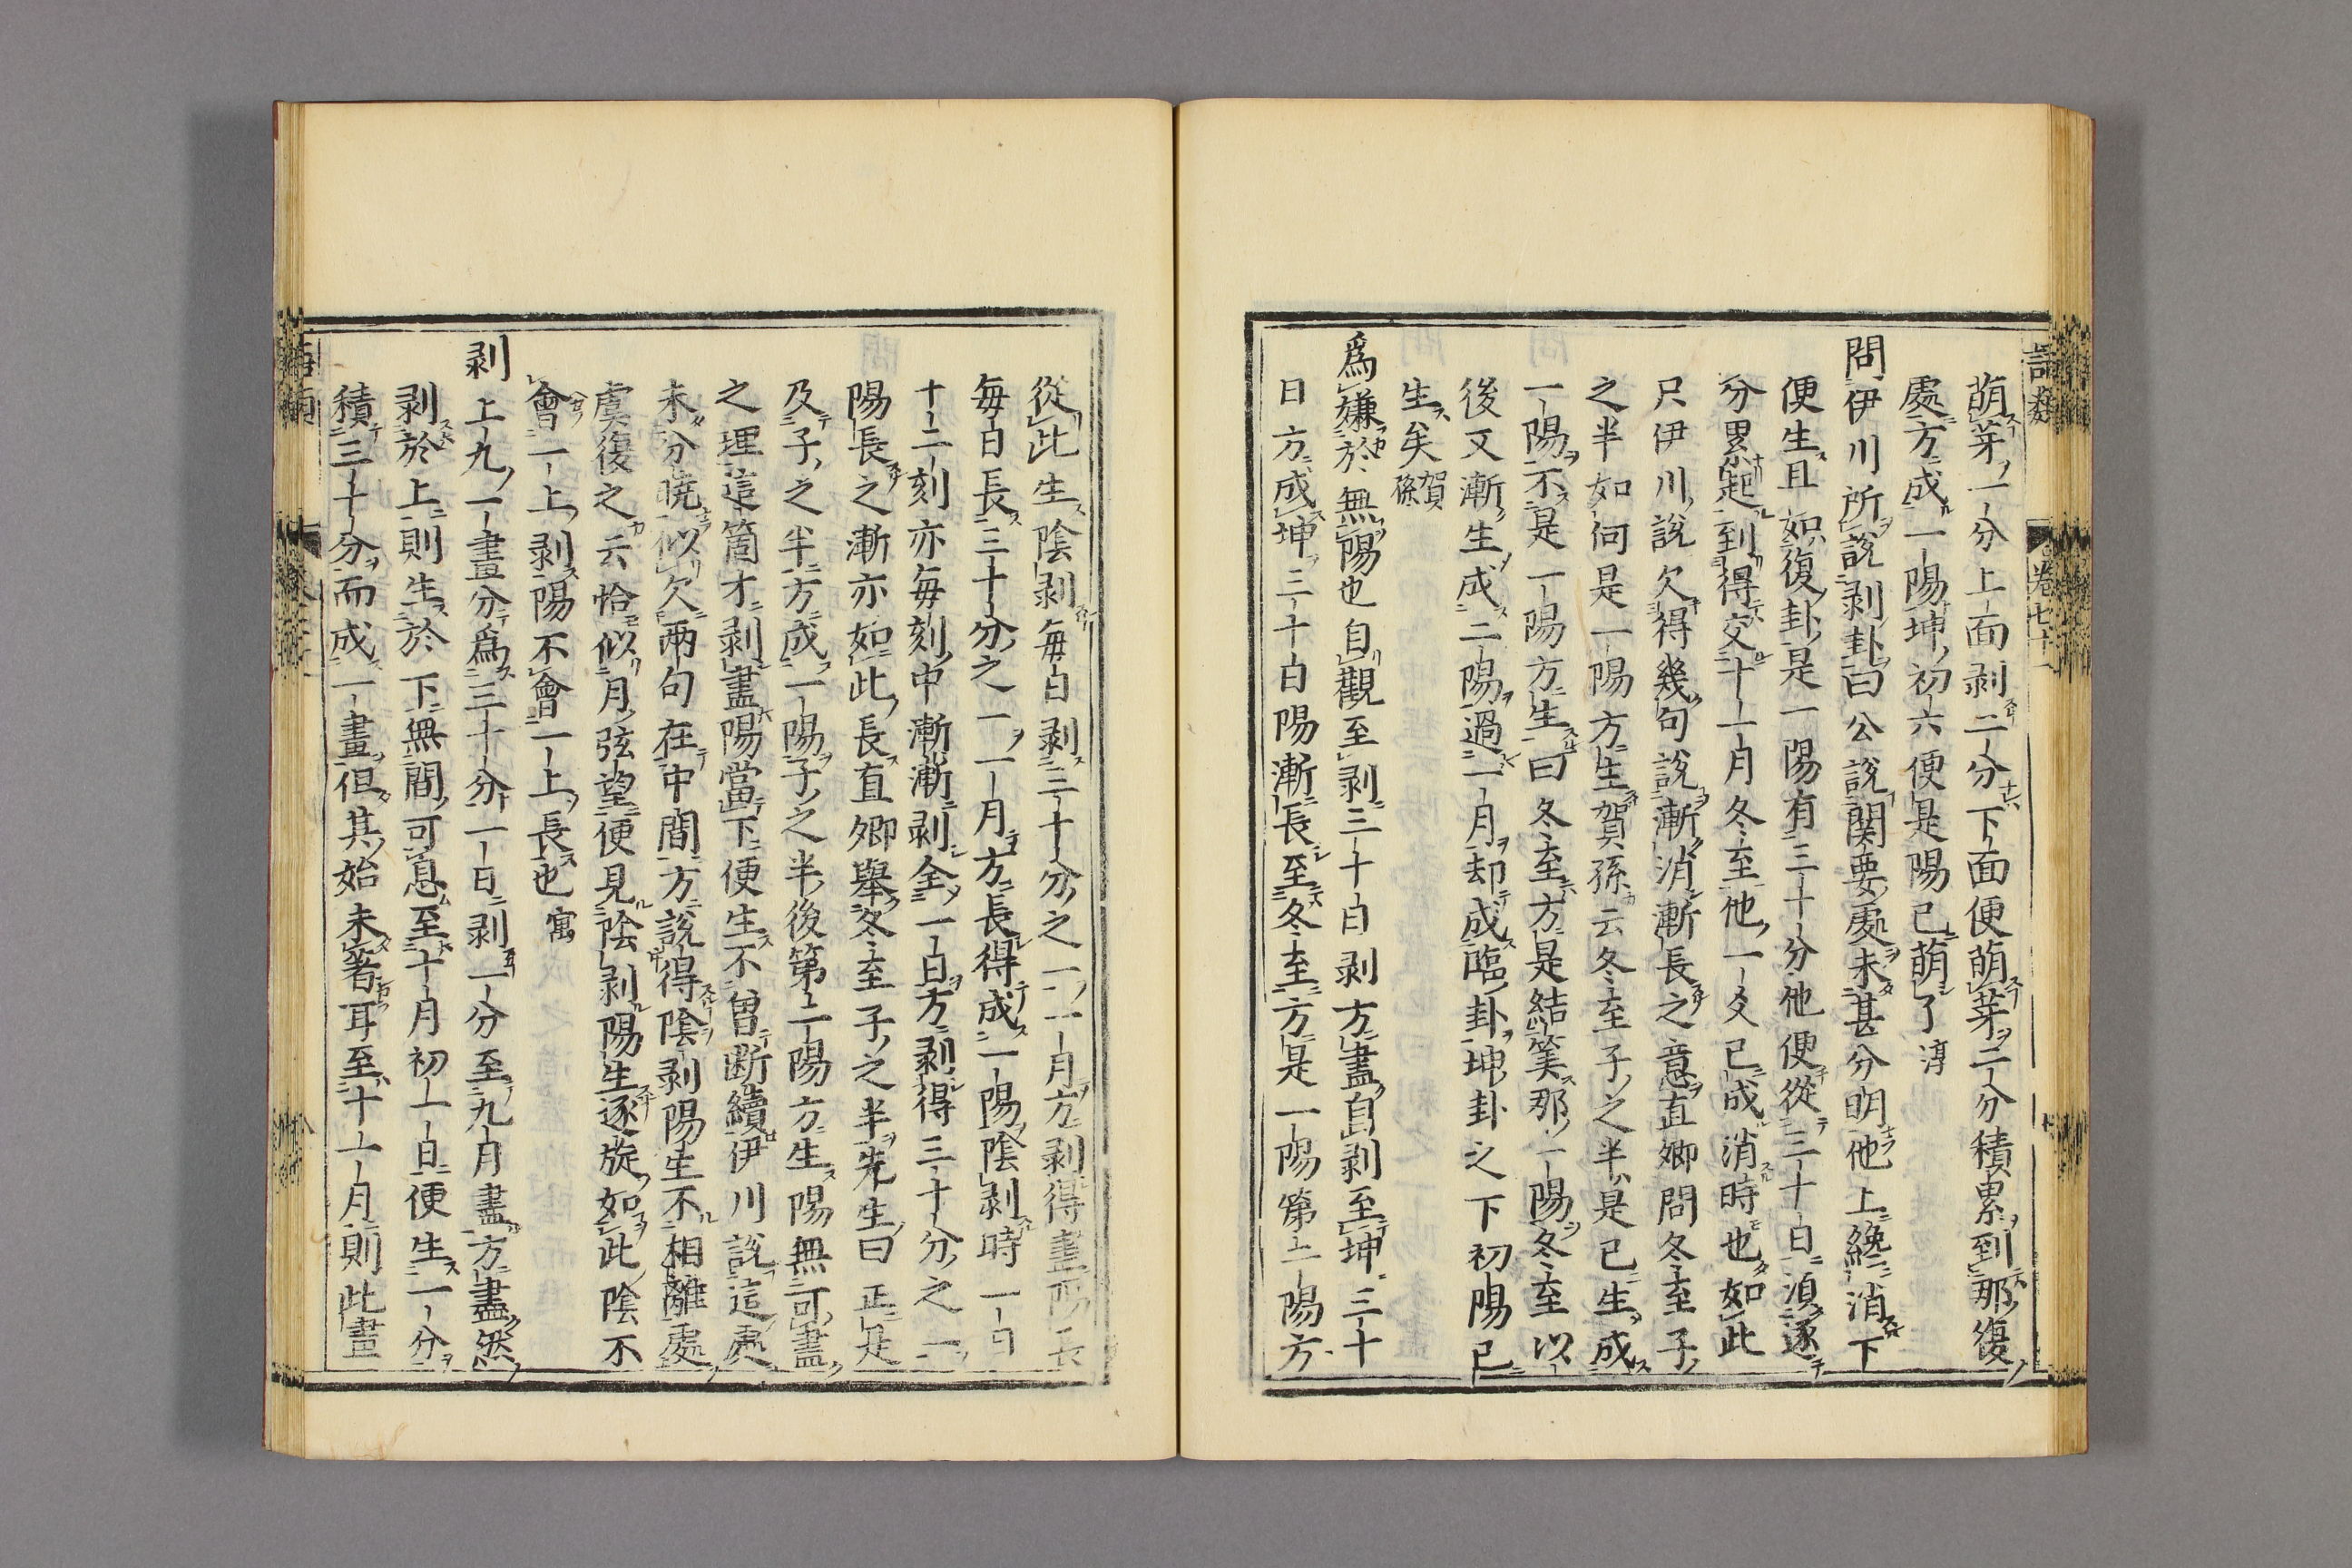 語類 卷七十一
萌芽一分上面剥二分下面便萌芽二分積累到那復
處方成一陽坤初六便是陽已萌了淳
問伊川所說剥卦曰公說関要處未甚分明他上纔消下
便生且如復卦是一陽有三十分他便從三十日湏逐
分累起到得交十一月冬至他一爻已成消時也如此
只伊川說欠得幾句說漸消漸長之意直卿問冬至子
之半如何是一陽方生賀孫云冬至子之半是已生成
一陽不是一陽方生曰冬至方是結筭那一陽冬至以
後又漸生成二陽過一月却成臨卦坤卦之下初陽已
生矣賀孫
爲嫌於無陽也自觀至剥三十日剥方盡自剥至坤三十
日方成坤三十日陽漸長至冬至方是一陽第二陽方
從此生陰剥每日剥三十分之一一月方剥得盡陽長
每日長三十分之一一月方長得成一陽陰剥時一日
十二刻亦每刻中漸漸剥全一日方剥得三十分之一
陽長之漸亦如此長直卿舉冬至子之半先生曰正是
及子之半方成一陽子之半後第二陽方生陽無可盡
之理這箇才剥盡陽當下便生不曾断續伊川說這處
未分曉似欠兩句在中間方說得陰剥陽生不相離處
虞復之云恰似月弦望便見陰剥陽生逐旋如此陰不
會一上剥陽不會一上長也㝢
剥上九一畫分爲三十分一日剥一分至九月盡方盡然
剥於上則生於下無間可息至十月初一日便生一分
積三十分而成一畫但其始未著耳至十一月則此畫